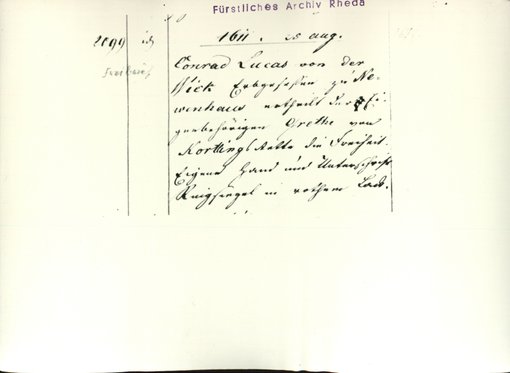 Fürstliches Archiv Rheda
2099
1611. 25 aug.
Freibrief
Conrad Lucas von der
Wick Erbgesessen zu Ne-
wenhaus ertheilt der Ei-
genbehörigen Grethe von
Korttings Kotte die Freiheit.
Eigene Hand und Unterschrift
Ringsiegel in rothem Lack.